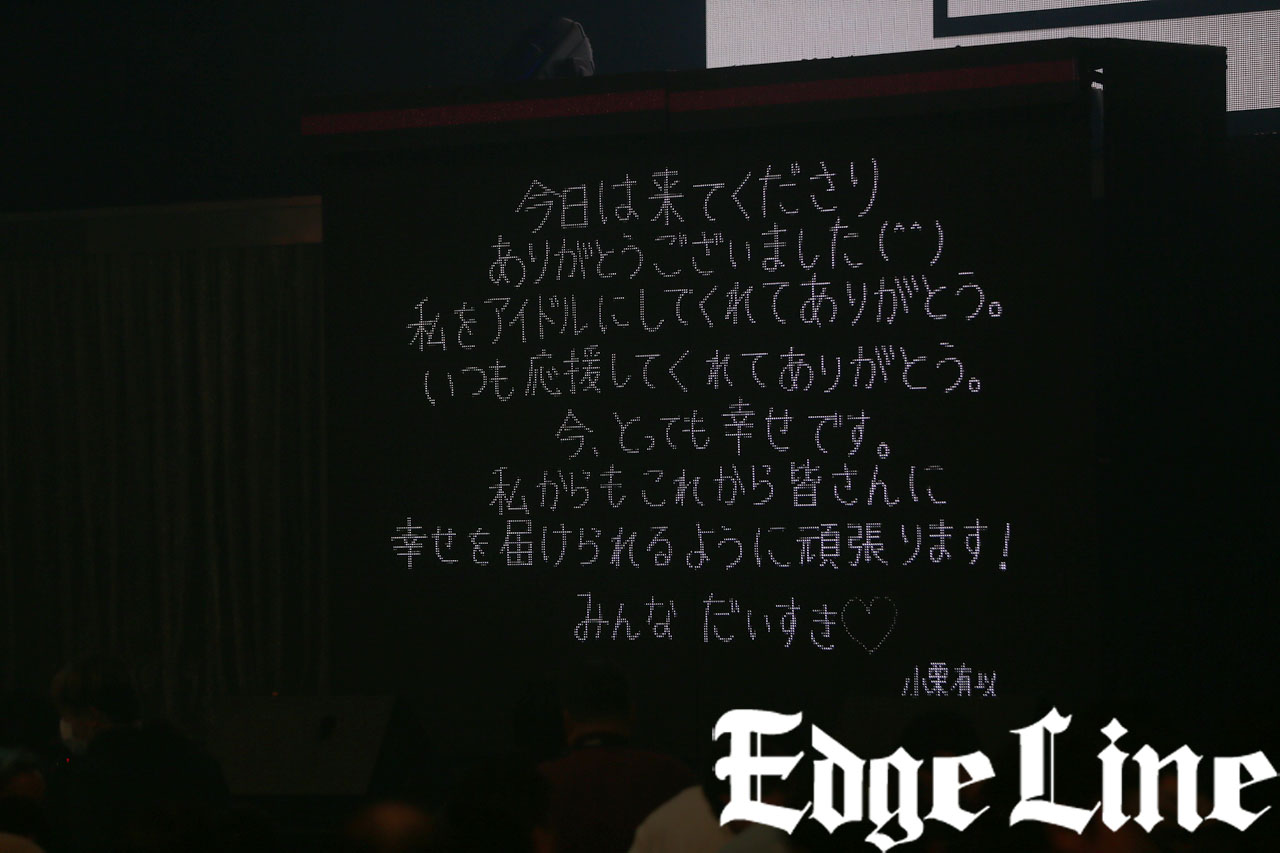 今日は来てくださり
ありがとうございました(^^)
私をアイドルにしてくれてありがとう。
いつも応援してくれてありがとう。
今、とっても幸せです。
私からもこれから皆さんに
幸せを届けられるように頑張ります!
みんな だいすき♡
小栗有以
Edge Line